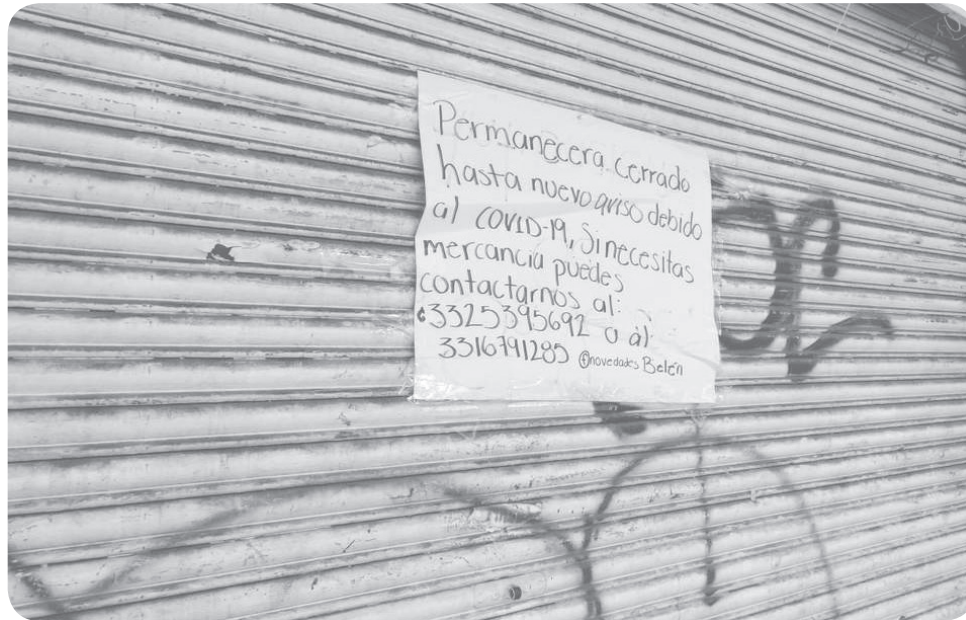 Permanecera cerrado
hasta nuevo aviso debido
al COVID-19, Si necesitas
mercancia puedes
contactarnos al:
3325395692 o al
3316791285 novedades Belén